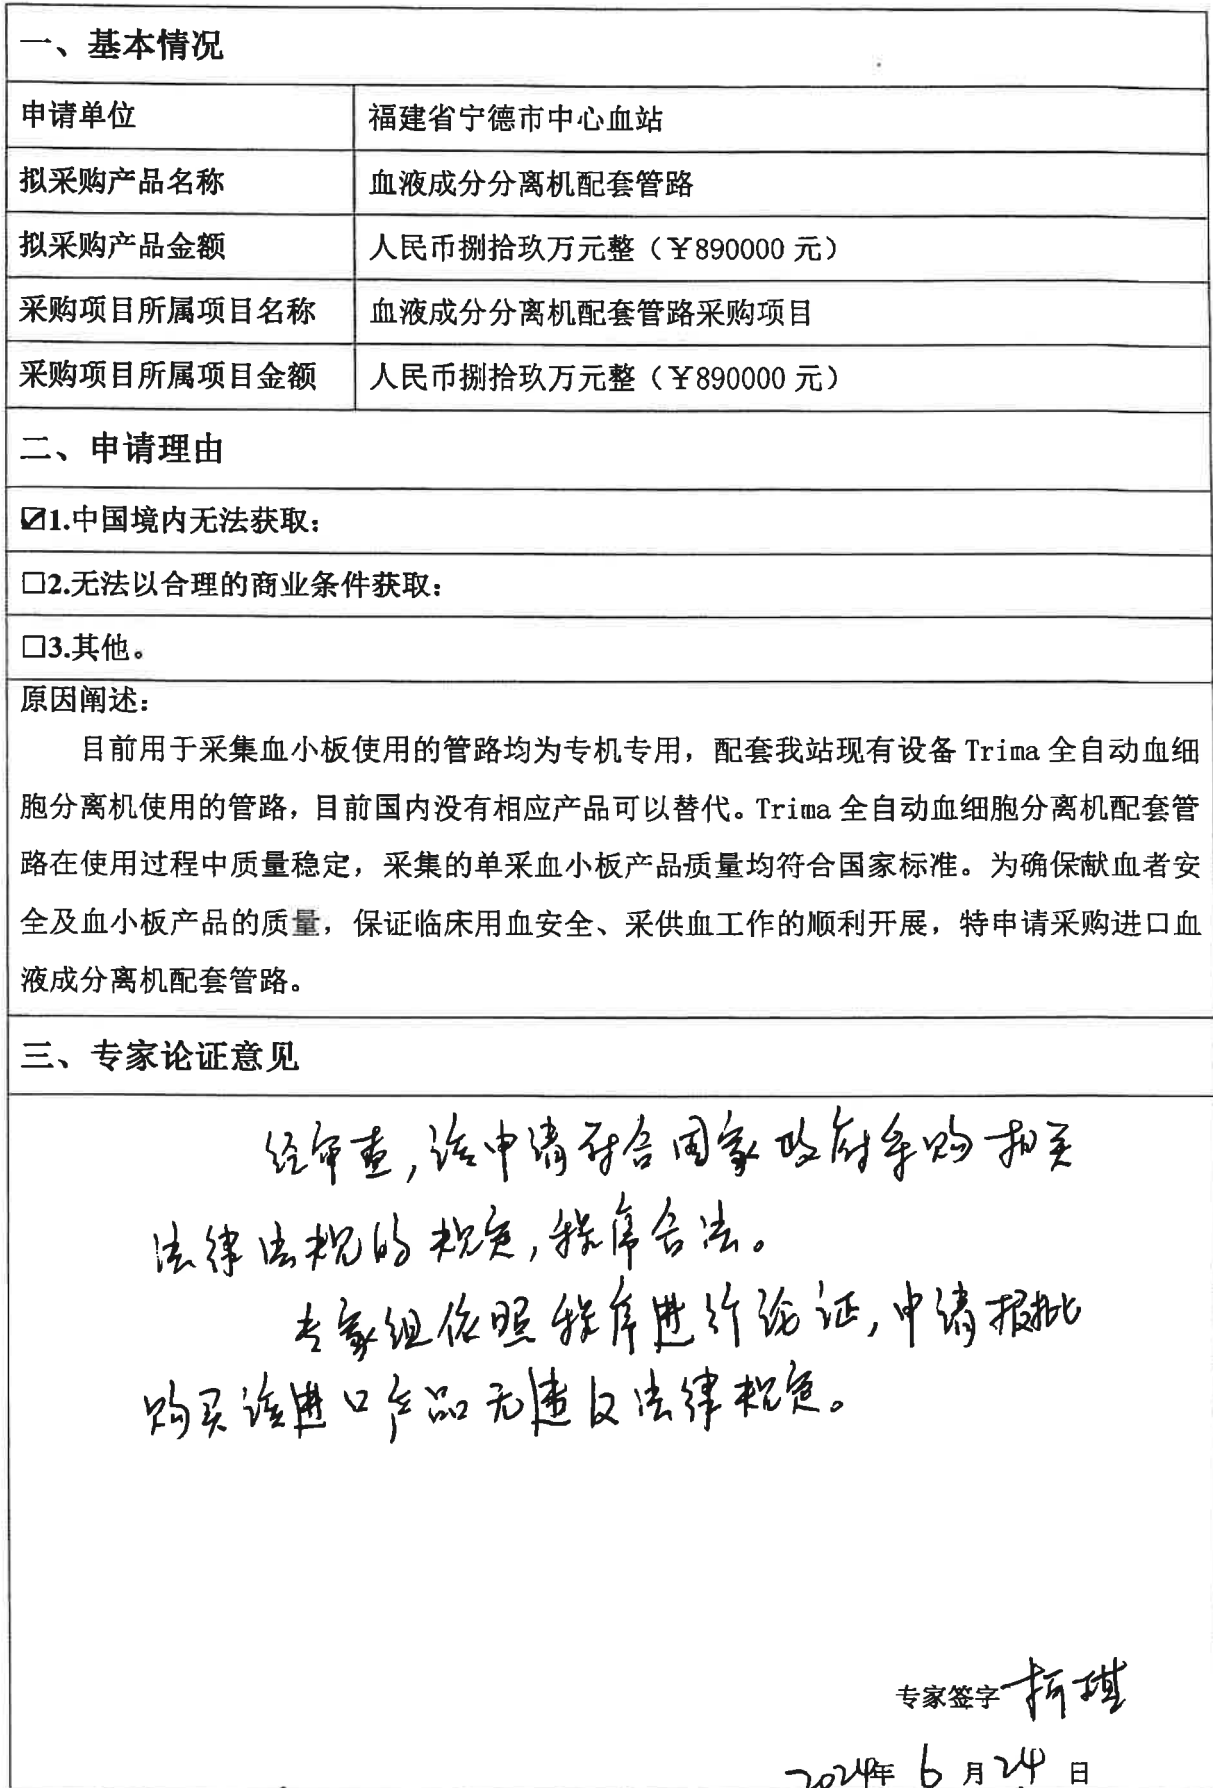 一、基本情况
申请单位 福建省宁德市中心血站
拟采购产品名称 血液成分分离机配套管路
拟采购产品金额 人民币捌拾玖万元整（￥890000 元）
采购项目所属项目名称 血液成分分离机配套管路采购项目
采购项目所属项目金额 人民币捌拾玖万元整（￥890000 元）
二、申请理由
☑1.中国境内无法获取：
□2.无法以合理的商业条件获取：
□3.其他。
原因阐述：
目前用于采集血小板使用的管路均为专机专用，配套我站现有设备 Trima 全自动血细
胞分离机使用的管路，目前国内没有相应产品可以替代。Trima 全自动血细胞分离机配套管
路在使用过程中质量稳定，采集的单采血小板产品质量均符合国家标准。为确保献血者安
全及血小板产品的质量，保证临床用血安全、采供血工作的顺利开展，特申请采购进口血
液成分离机配套管路。
三、专家论证意见
经审查，该申请符合国家政府采购相关
法律法规的规定，程序合法。
专家组依照程序进行论证，申请报批
购买该进口产品无违反法律规定。
专家签字 柯琪
2024年 6 月 24 日